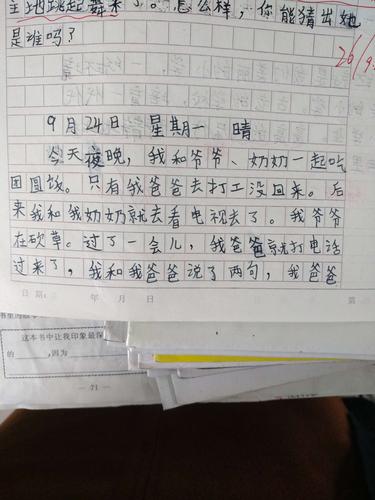 地跳起舞来了。怎么样，你能猜出她
是谁吗？
26/9
9月24日 星期一 晴
今天夜晚，我和爷爷、奶奶一起吃
团圆饭。只有我爸爸去打工没回来。后
来我和我奶奶就去看电视去了。我爷爷
在砍草。过了一会儿，我爸爸就打电话
过来了，我和我爸爸说了两句，我爸爸
日期： 年 月 日 第
这本书中让我印象最深
的 ，因为
— 71 —